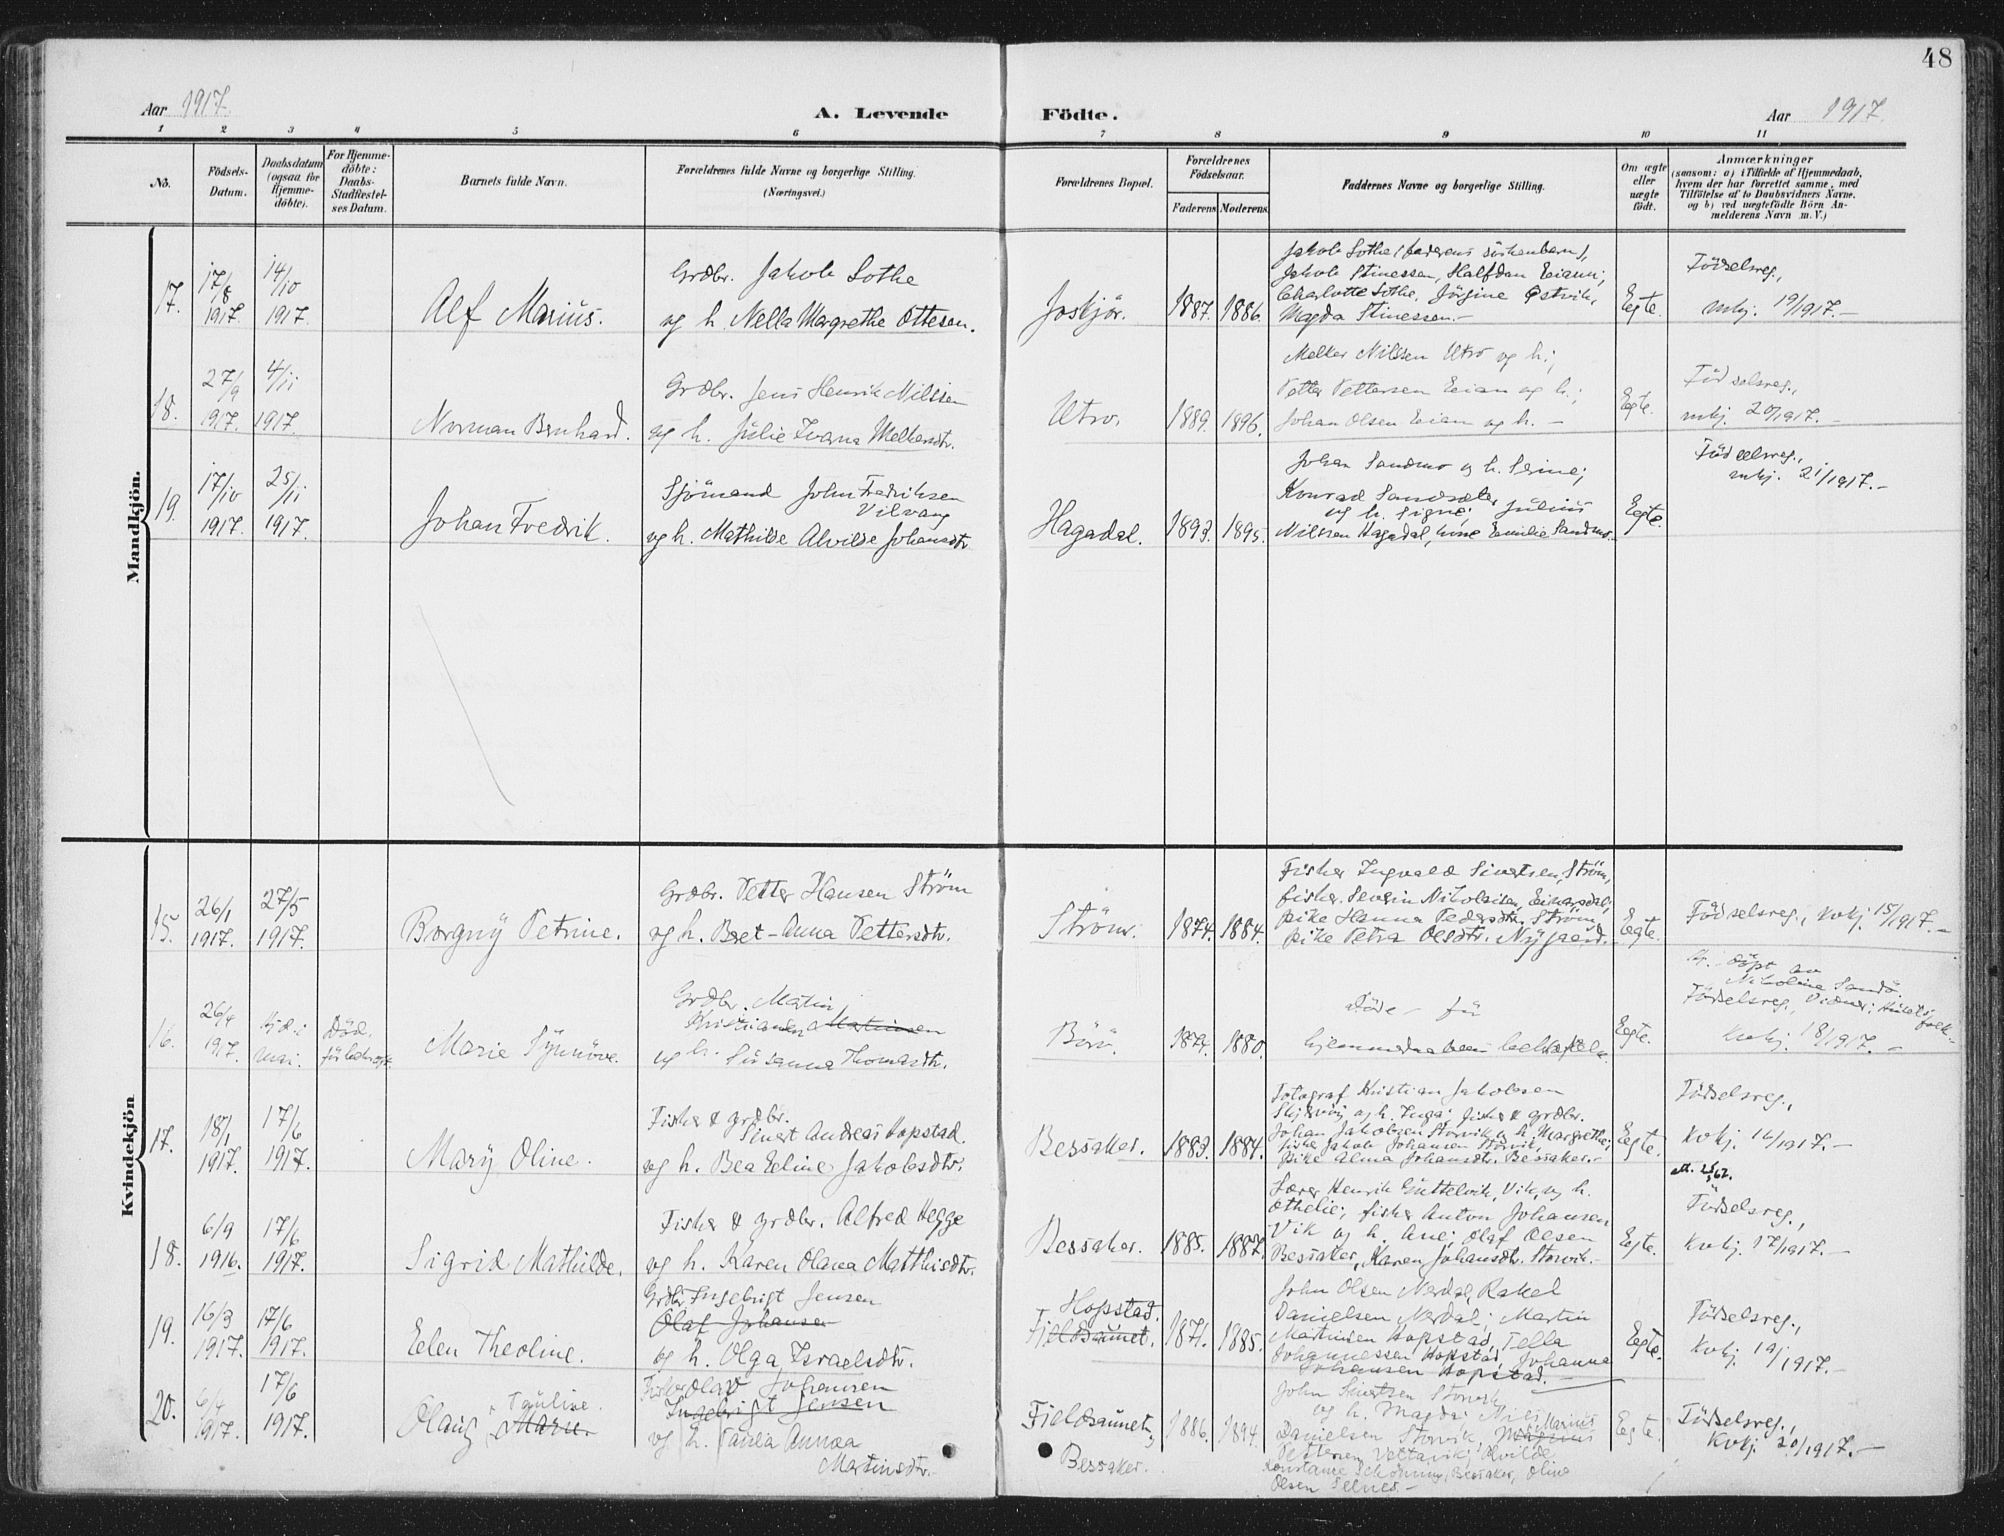 48
Aar 1917.
A. Levende Födte.
Aar 1917.
1 2 3 4 5 6 7 8 9 10 11
No.
Födsels-Datum.
Daabsdatum (ogsaa for Hjemme-döbte).
For Hjemme-döbte: Daabs-Stadfæstel-ses Datum.
Barnets fulde Navn.
Forældrenes fulde Navne og borgerlige Stilling. (Næringsvei.)
Forældrenes Bopæl.
Forældrenes Födselsaar.
Faderens Moderens
Faddernes Navne og borgerlige Stilling.
Om ægte eller uægte født.
Anmærkninger
(saasom: a) i Tilfælde af Hjemmedaab,
hvem der har forrettet samme, med
Tilföielse af to Daabsvidners Navne,
og b) ved uægtefödte Börn An-
melderens Navn m. V.)
Mandkjön.
17. 17/8 1917. 14/10 1917.
Alf Marius.
Grdbr. Jakob Sothe
og h. Nella Margrethe Ottesen.
Joskjör. 1887. 1886.
Jakob Sothe (faderens söskenbarn),
Jakob Stinessen, Halfdan Eiann;
Charlotte Sothe, Jörgine Östvik,
Magda Stinessen.-
Egte.
Födselsreg.,
mkj. 19/1917.-
18. 27/9 1917. 4/11 1917.
Norman Bernhard.
Grdbr. Jens Henrik Nilssen
og h. Julie Ivarna Melkersdtr.
Utro. 1889. 1896.
Melker Nilssen Utro og h;
Petter Pettersen Eian og h.;
Johan Olsen Eian og h. -
Egte.
Födselsreg.,
mkj. 20/1917.-
19. 17/10 1917. 25/11 1917.
Johan Fredrik.
Sjömand John Fredriksen
Vilvang
og h. Mathilde Alvilde Johansdtr.
Hagadal. 1893. 1895.
Johan Sandmo og h. Serine;
Konrad Sandsæter
og h. Signe; Julius
Nilssen Hagadal, Emilie Sandmo.-
Egte.
Födselsreg.,
mkj. 21/1917.-
Kvindekjön
15. 26/1 1917. 27/5 1917.
Borgny Petrine.
Grdbr. Petter Hansen Ström
og h. Beret-Anna Pettersdtr.
Ström. 1874. 1884.
Fisker Ingvald Sivertsen, Ström,
fisker Severin Nikolaisen, Einarsdal;
pike Hanna Pedersdtr. Ström,
pike Petra Olsdtr. Nygaard.-
Egte.
Födselsreg., kvkj. 15/1917.-
16. 26/4 1917. mai.
Död,
Marie Synnöve.
Grdbr. Martin
Kristiansen Martinsen
og h. Susanna Thomasdtr.
Börö. 1874. 1880.
Döde för
hjemmedaaben
Egte.
döpt av
Nikoline Sandö.
Födselsreg.,
kvkj. 18/1917.-
17. 18/1 1917. 17/6 1917.
Mary Oline.
Fisker & grdbr.
Sivert Andreas Hopstad.
og h. Bea Eline Jakobsdtr.
Bessaker. 1883. 1884.
Fotograf Kristian Jakobsen
og h. Inga; fisker & grdbr.
Johan Jakobsen Storvik og h. Margrethe;
fisker Jakob Johansen Storvik,
pike Alma Johansdtr. Bessaker.-
Egte.
Födselsreg.,
kvkj. 16/1917.-
18. 6/9 1916. 17/6 1917.
Sigrid Mathilde.
Fisker & grdbr. Alfred Hegge
og h. Karen Olava Matthisdtr.
Bessaker. 1885. 1887.
Lærer Henrik Guttelvik, Vik, og h.
Othelie; fisker Anton Johansen
Vik og h. Ane; Olaf Olsen
Bessaker, Karen Johansdtr. Storvik.-
Egte.
Födselsreg.,
kvkj. 17/1917.-
19. 16/3 1917. 17/6 1917.
Eelen Theoline.
Grdbr. Ingebrigt Jensen
Olaf Johansen
og h. Olga Israelsdtr.
Hopstad.
Fieldsaunet. 1871. 1885.
John Olsen Nerdal, Rakel
Danielsen Nerdal; Martin
Martinsen Hopstad, Tella
Johannessen Hopstad, Johanna
Johansen Hopstad.-
Egte.
Födselsreg.,
kvkj. 19/1917.-
20. 6/4 1917. 17/6 1917.
Olaug Pauline.
Marie.
Fisker Olav Johansen
Ingebrigt Jensen
og h. Paula Annæa
Martinsdtr.
Fieldsaunet,
Bessaker. 1886. 1894.
John Sivertsen Storvik
og h. Magda; Nils
Danielsen Storvik, Marius
Pettersen
Konstanse Bessaker, Oline
Olsen Selnes.-
Egte.
Födselsreg.,
kvkj. 20/1917.-